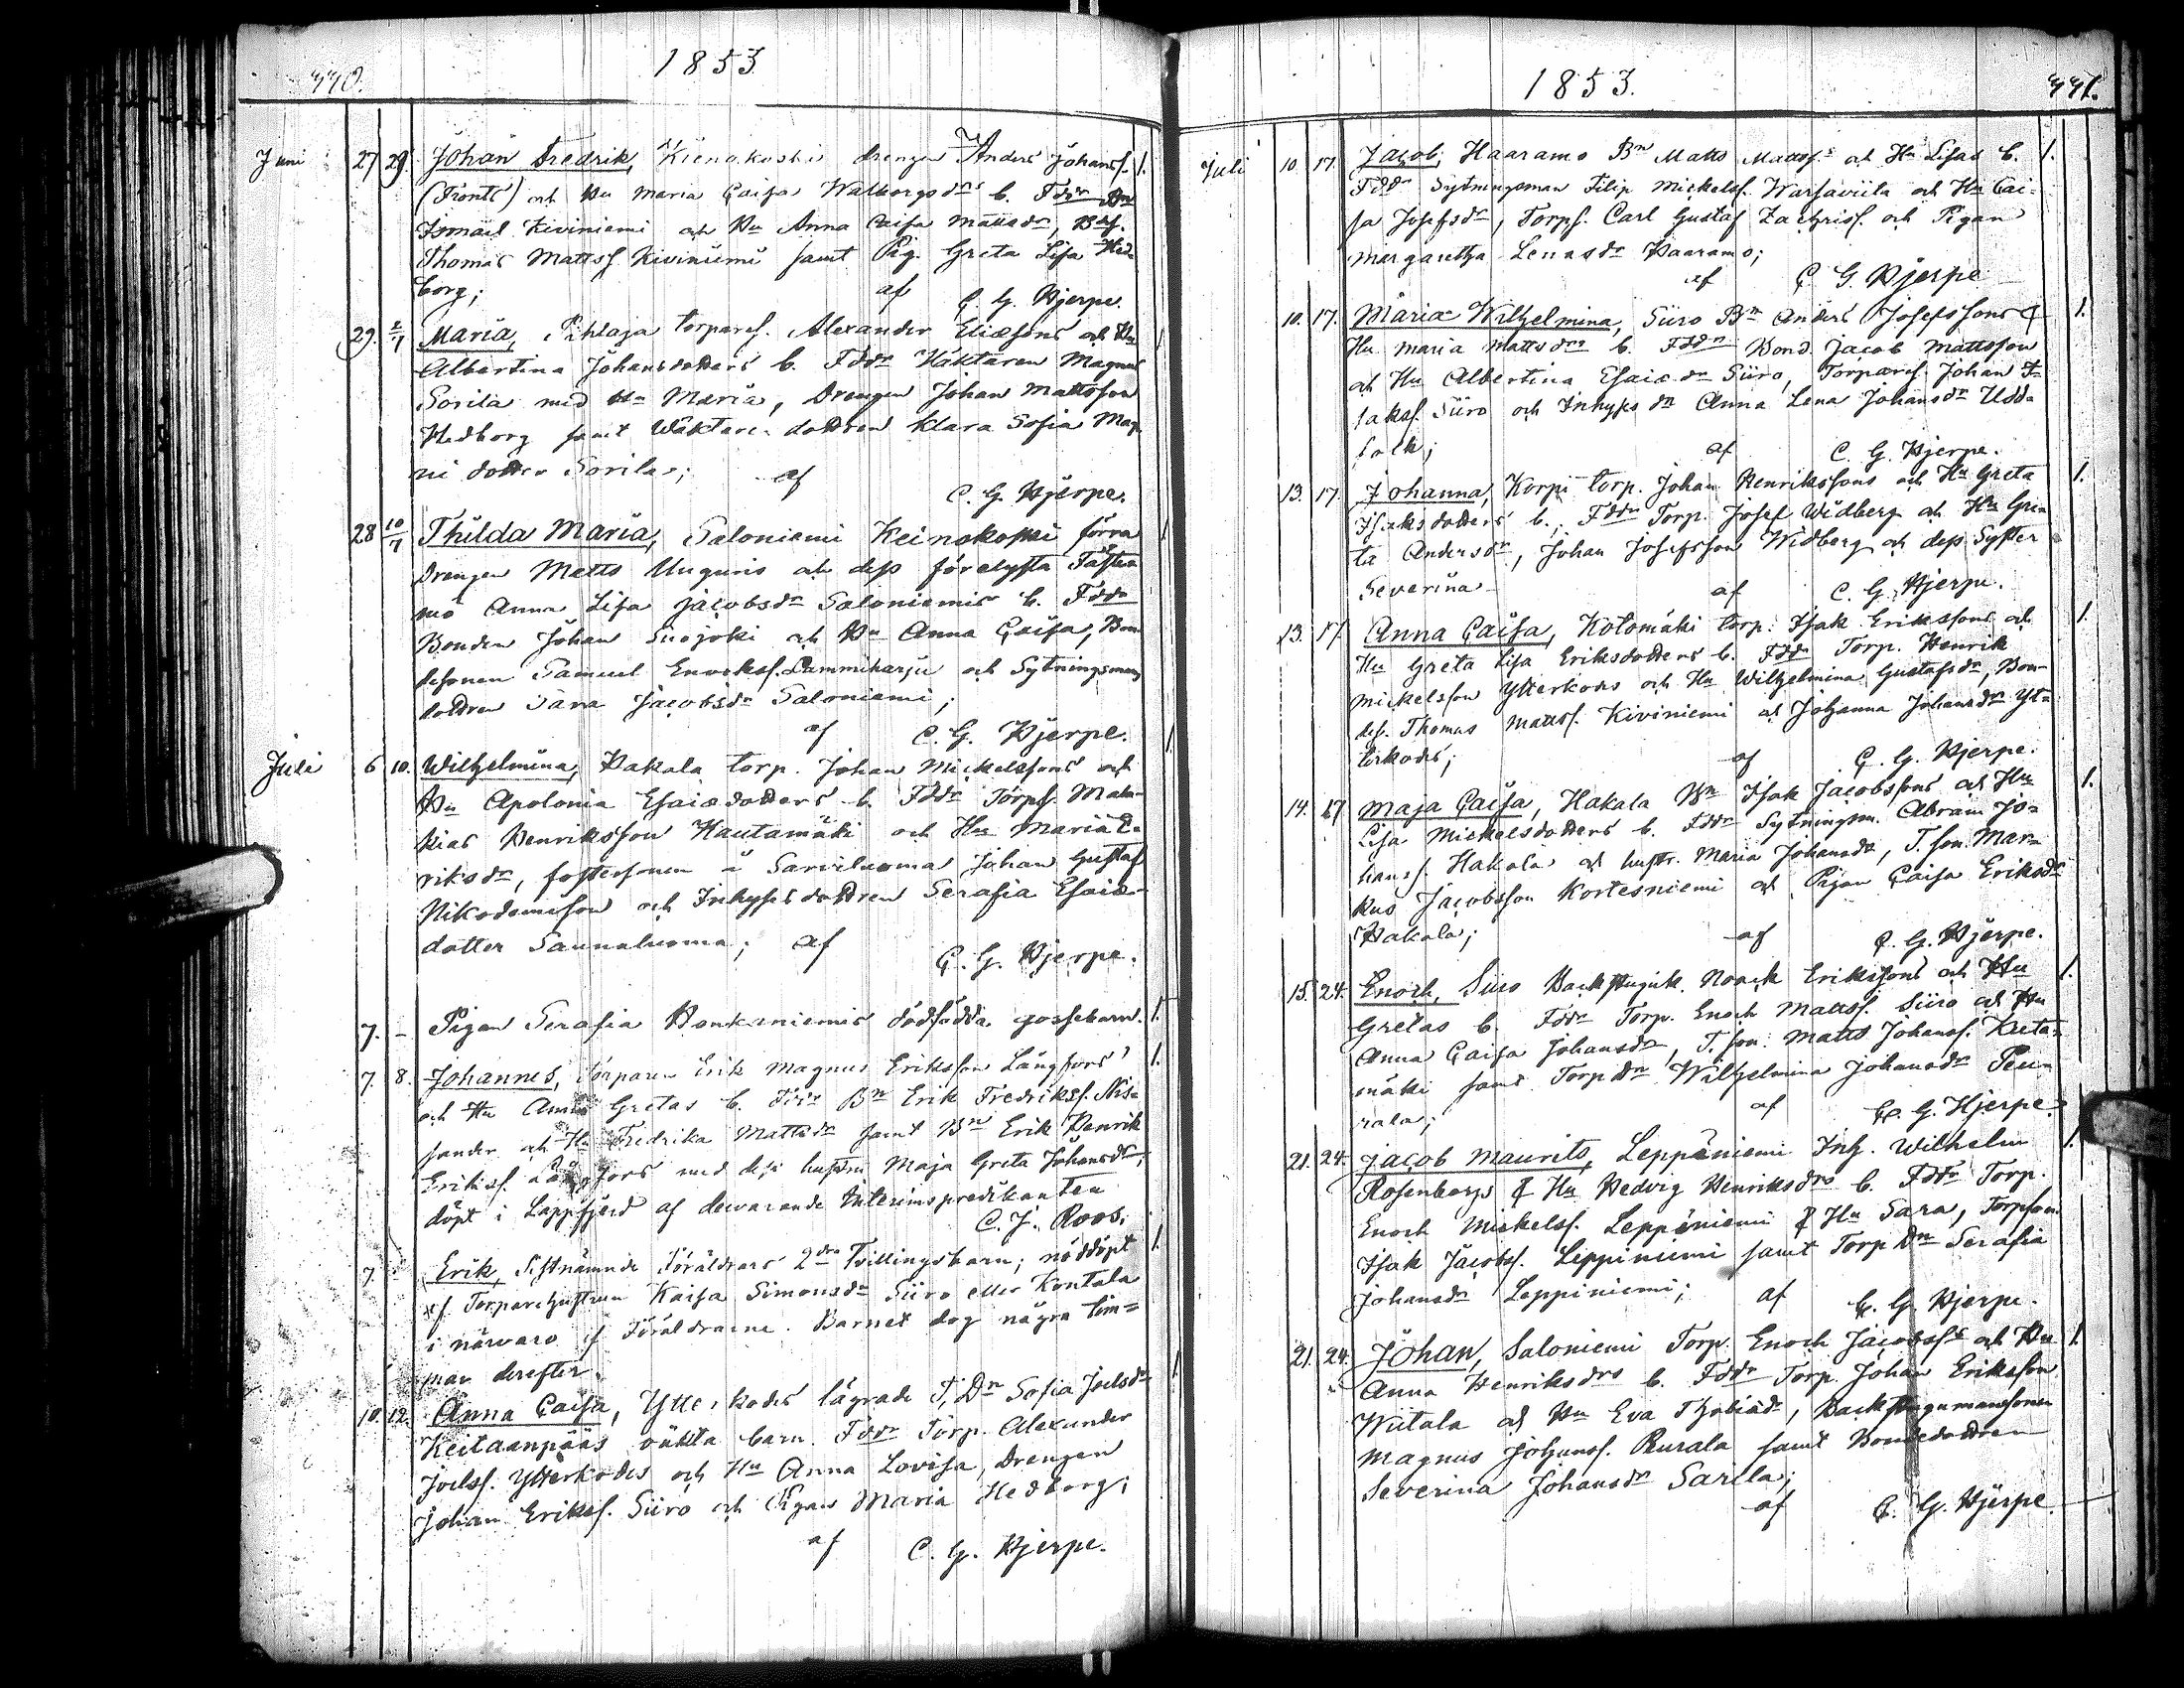 440.
1853
Juni 27 29. Johan Fredrik, Kienokoski drengen Anders Johanss. 1.
(Fronts) och Hu Maria Caisa Walborgsdrs b. Fddr Bn
Ismäel Kiviniemi och Hu Anna Caisa Mattsdr, Bdes.
Thomas Mattss. Kiviniemi samt Pig. Greta Lisa Hed-
borg; af C. G. Hjerpe.
29. 2/7 Maria, Pihlaja torpares. Alexander Eliæsons och Hu 1
Albertina Johansdotters b. Fddr Wäktaren Magnus
Sorila med Hu Maria, Drengen Johan Mattsson
Hedborg samt Wäktare dottren Klara Sofia Mag-
ni dotter Sorila; af
C. G. Hjerpe.
28 10/7 Thilda Maria, Saloniemi Keinokoski förra 1
Drengen Matts Unguris och dess förelysta Fästeq
mö Anna Lisa Jacobsdr Saloniemis b. Fddr
Bonden Johan Suojoki och Hu Anna Caisa, Bon-
desonen Samuel Enockss. Lammiharju och Sytningsmans
dottren Sara Jacobsdr Saloniemi;
af C. G. Hjerpe.
Juli 6 10. Wilhelmina, Hakala torp. Johan Mickelssons och 1.
Hu Apolonia Esaiædotters b. Fddr Torps. Mala-
kias Henriksson Hautamäki och Hu Maria E-
riksdr, fostersonen å Sarviluoma Johan Gustaf
Nikodemusson och Inhyses dottren Serafia Esaiæ-
dotter Saunaluoma; af
C. G. Hjerpe.
7. – Pigan Serafia Honkaniemis dödfödda gossebarn. 1.
7. 8. Johannes, Torparen Erik Magnus Eriksson Långfors' 1.
och Hu Anna Gretas b. Fddr Bn Erik Fredrikss. Nis-
sander och Hu Fredrika Mattsdr samt Bn Erik Henrik
Erikss. Långfors med dess hustru Maja Greta Johansdr,
döpt i Lappfjerd af dervarande Interimspredikanten
C. J. Roos.
7. Erik, Sistnämnde Föräldrars 2dra Tvillingsbarn; nöddöpt 1.
af Torparehustrun Kaisa Simonsdr Siiro eller Kontala
i närvaro af Föräldrarne. Barnet dog några tim=
mar derefter.
10. 12. Anna Caisa, Ytterkodes lägrade T. Dr Sofia Joelsdr 1
Keitaanpääs oäkta barn. Fddr Torp. Alexander
Joelss. Ytterkodes och Hu Anna Lovisa, Drengen
Johan Erikss. Siiro och Pigan Maria Hedborg;
af C. G. Hjerpe.
1853.
441.
Juli 10. 17. Jacob, Haaramo Bn Matts Mattss:s och Hu Lisas b. 1.
Fddr Sytningsman Filip Mickelss. Warsaviita och Hu Cai-
sa Josefsdr, Torps. Carl Gustaf Zachriss. och Pigan
Margaretha Lenasdr Haaramo;
af C. G. Hjerpe
10. 17. Maria Wilhelmina, Siiro Bn Anders Josefssons & 1.
Hu Maria Mattsdrs b. Fddr Bond. Jacob Mattsson
och Hu Albertina Esaiædr Siiro, Torpares. Johan I-
sakss. Siiro och Inhyses dr Anna Lena Johansdr Udd-
folk; af C. G. Hjerpe.
13. 17. Johanna, Korpi torp. Johan Henrikssons och Hu Greta 1.
Isaksdotters b. Fddr Torp. Josef Widberg och Hu Gre-
ta Andersdr, Johan Josefsson Widberg och dess Syster
Severina af C. G. Hjerpe.
13. 17. Anna Caisa, Kotomäki torp. Isak Erikssons och 1.
Hu Greta Lisa Eriksdotters b. Fddr Torp. Henrik
Mickelsson Ytterkodes och Hu Wilhelmina Gustafsdr, Bon-
des. Thomas Mattss. Kiviniemi och Johanna Johansdr Yt-
terkodes; af C. G. Hjerpe.
14. 17 Maja Caisa, Hakala Bn Isak Jacobssons och Hu 1.
Lisa Mickelsdotters b. Fddr Sytningsm. Abram Jo-
hanss. Hakala och hustr. Maria Johansdr, T. son Mar-
kus Jacobsson Kortesniemi och Pigan Caisa Eriksdr
Hakala; af C. G. Hjerpe.
15. 24. Enoch, Siiro Backstugik. Noack Erikssons och Hu 1.
Gretas b. Fddr Torp. Enoch Mattss. Siiro och Hu
Anna Caisa Johansdr, T. son. Matts Johanss. Keeta-
mäki samt Torp Dr Wilhelmina Johansdr Peu-
rala; af C. G. Hjerpe.
21. 24. Jacob Maurits, Leppäniemi Inh. Wilhelm 1.
Rosenbergs & Hu Hedvig Henriksdrs b. Fddr Torp.
Enoch Mickelss. Leppäniemi & Hu Sara, Torpson
Isak Jacobss. Leppiniemi samt Torp Dr Serafia
Johansdr Leppiniemi; af C. G. Hjerpe.
21. 24. Johan, Saloniemi Torp. Enoch Jacobss:s och Hu 1.
Anna Henriksdrs b. Fddr Torp. Johan Eriksson
Wiitala och Hu Eva Thobiædr, Backstugumanssonen
Magnus Johanss. Peurala samt Bondedottren
Severina Johansdr Sarila;
af C. G. Hjerpe.